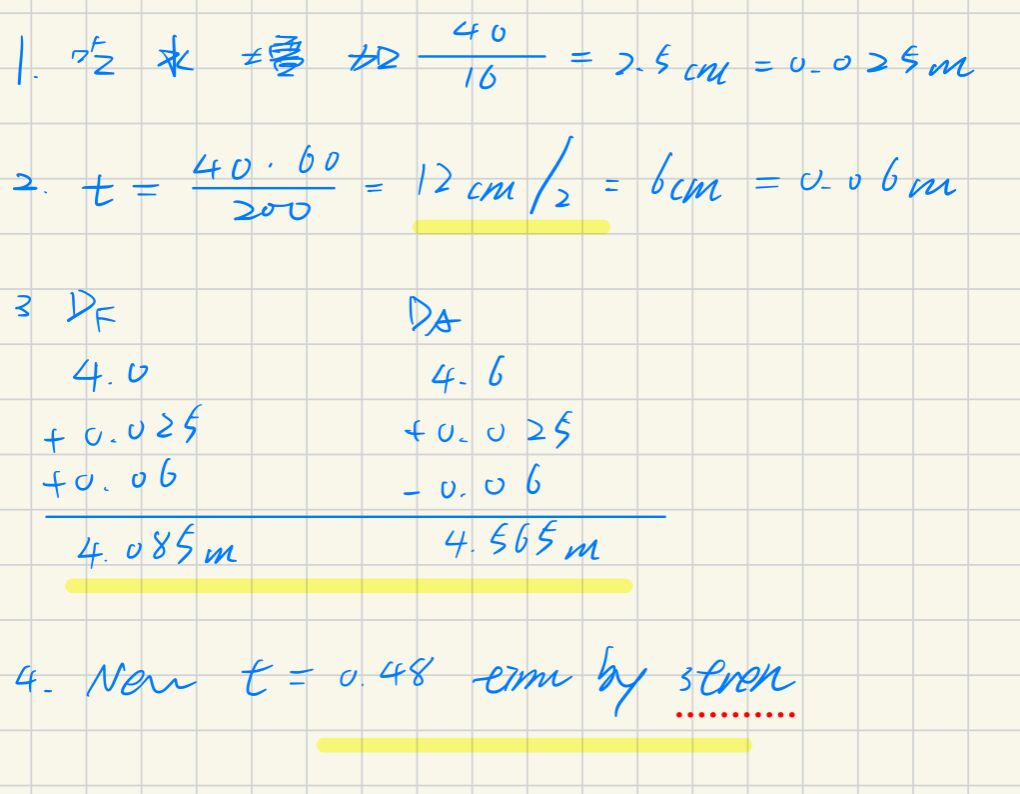 1. 吃水 加 40/16 = 2.5 cm = 0.025 m
2. t = 40·60/200 = 12 cm /2 = 6cm = 0.06 m
3 DF DA
4.0 4.6
+0.025 +0.025
+0.06 -0.06
4.085 m 4.565 m
4. New t = 0.48 by stern